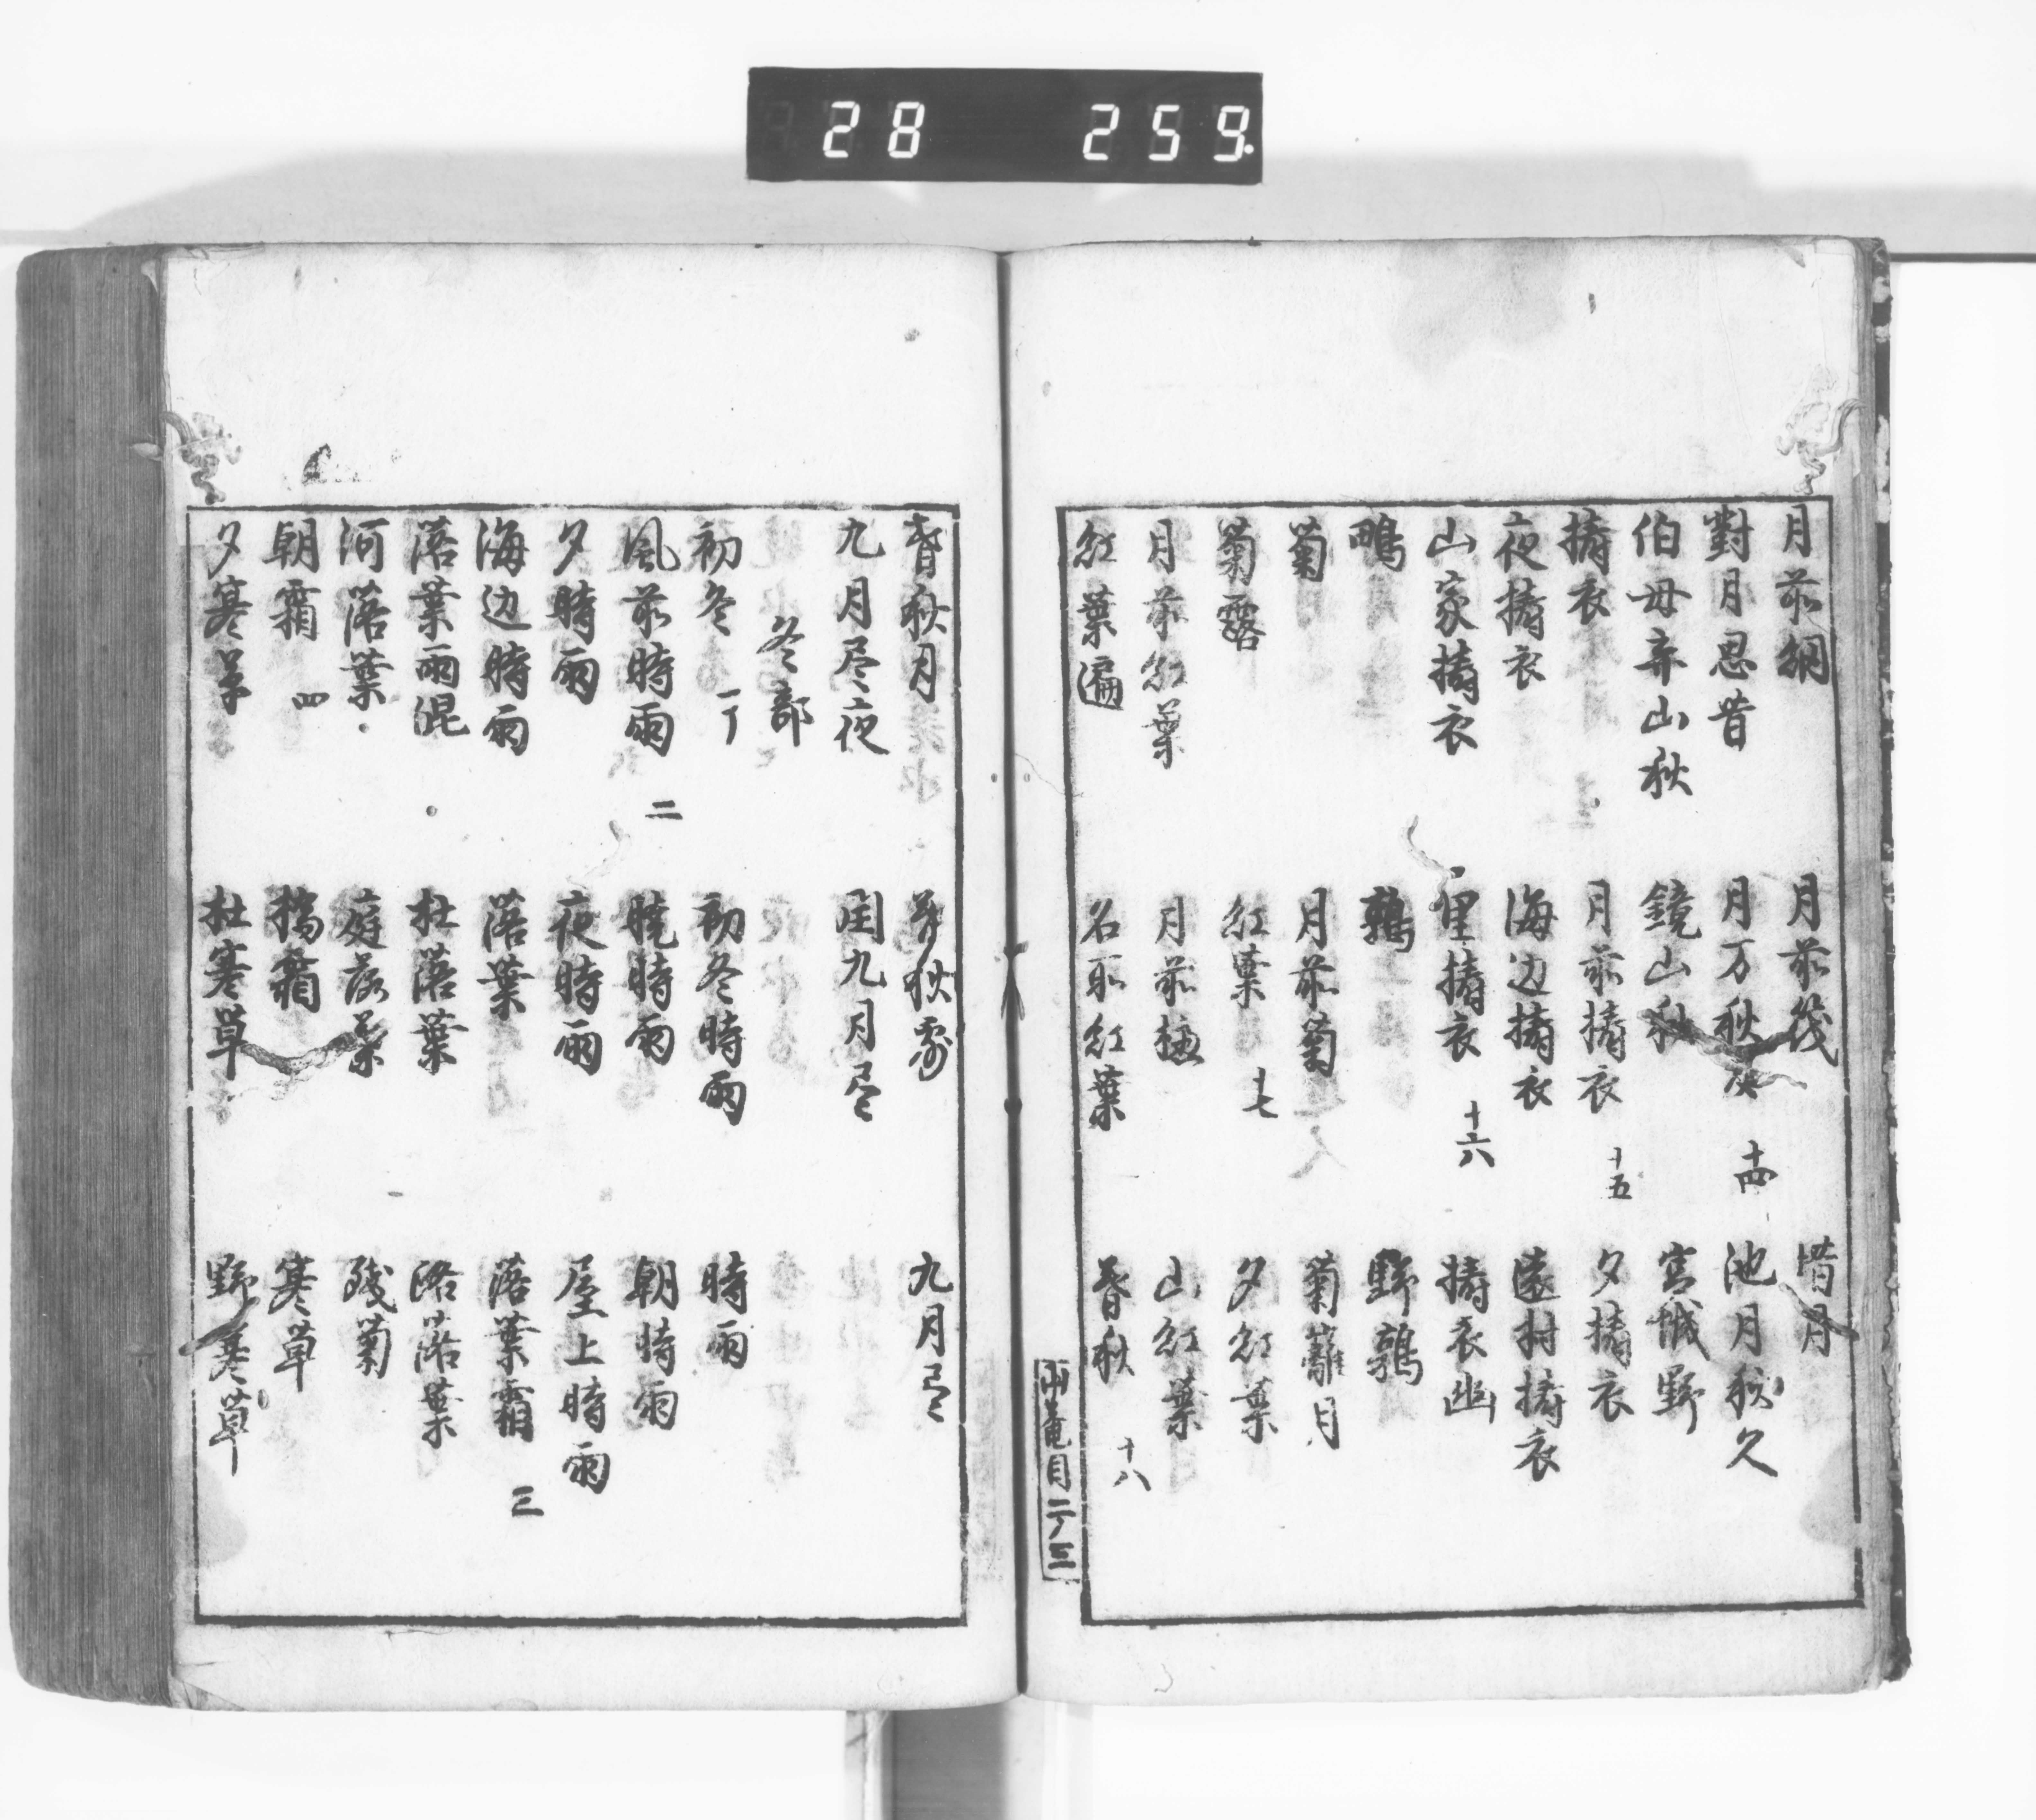 28 259.
月前網 月前筏 惜月
對月思昔 月万秋友 十四 池月秋久
伯母弃山秋 鏡山秋 宮城野
擣衣 月前擣衣 十五 夕擣衣
夜擣衣 海辺擣衣 遠村擣衣
山家擣衣 里擣衣 十六 擣衣幽
鴫 鶉 野鶉
菊 月前菊 菊籬月
菊露 紅葉 十七 夕紅葉
月前紅葉 月前槭 山紅葉
紅葉遍 名所紅葉 暮秋 十八
両菴目二ノ三
暮秋月 暮秋霧 九月尽
九月尽夜 閏九月尽
冬部
初冬 一丁 初冬時雨 時雨
風前時雨 二 暁時雨 朝時雨
夕時雨 夜時雨 屋上時雨
海辺時雨 落葉 落葉霜 三
落葉雨混 杜落葉 路落葉
河落葉 庭落葉 残菊
朝霜 四 橋霜 寒草
夕寒草 杜寒草 野寒草